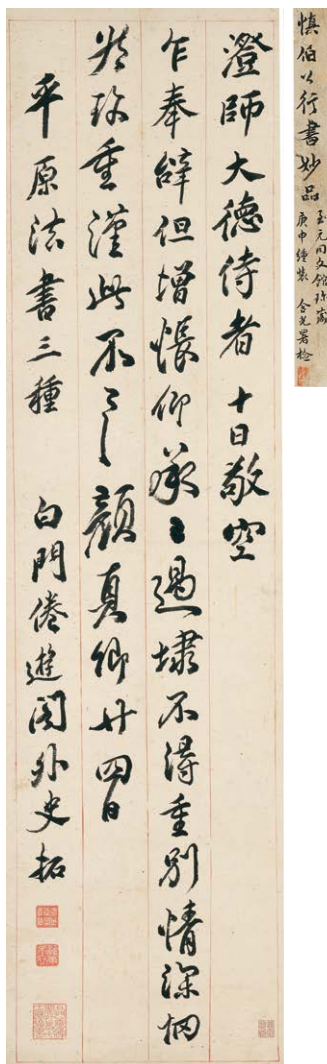 慎伯公行書妙品
同文館珍藏
庚申緟裝 含光署檢
澄師大德侍者 十日敬空
乍奉辭但增悵仰承過埭不得重別情深惘
然珍重謹此不 顏真卿廿四日
平原法書三種 白門倦遊閣外史拓